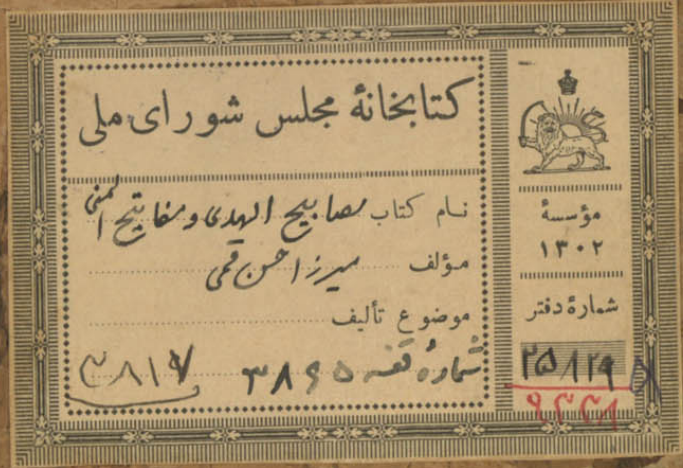 کتابخانهٔ مجلس شورای ملی
نام کتاب مصابیح الهدی و مفاتیح المنی
مؤلف میرزا حسن قمی
موضوع تألیف
شمارهٔ قفسه ۳۸۶۵
۳۸۱۷
مؤسسهٔ
۱۳۰۲
شمارهٔ دفتر
۲۵۸۲۹
۹۳۳۸